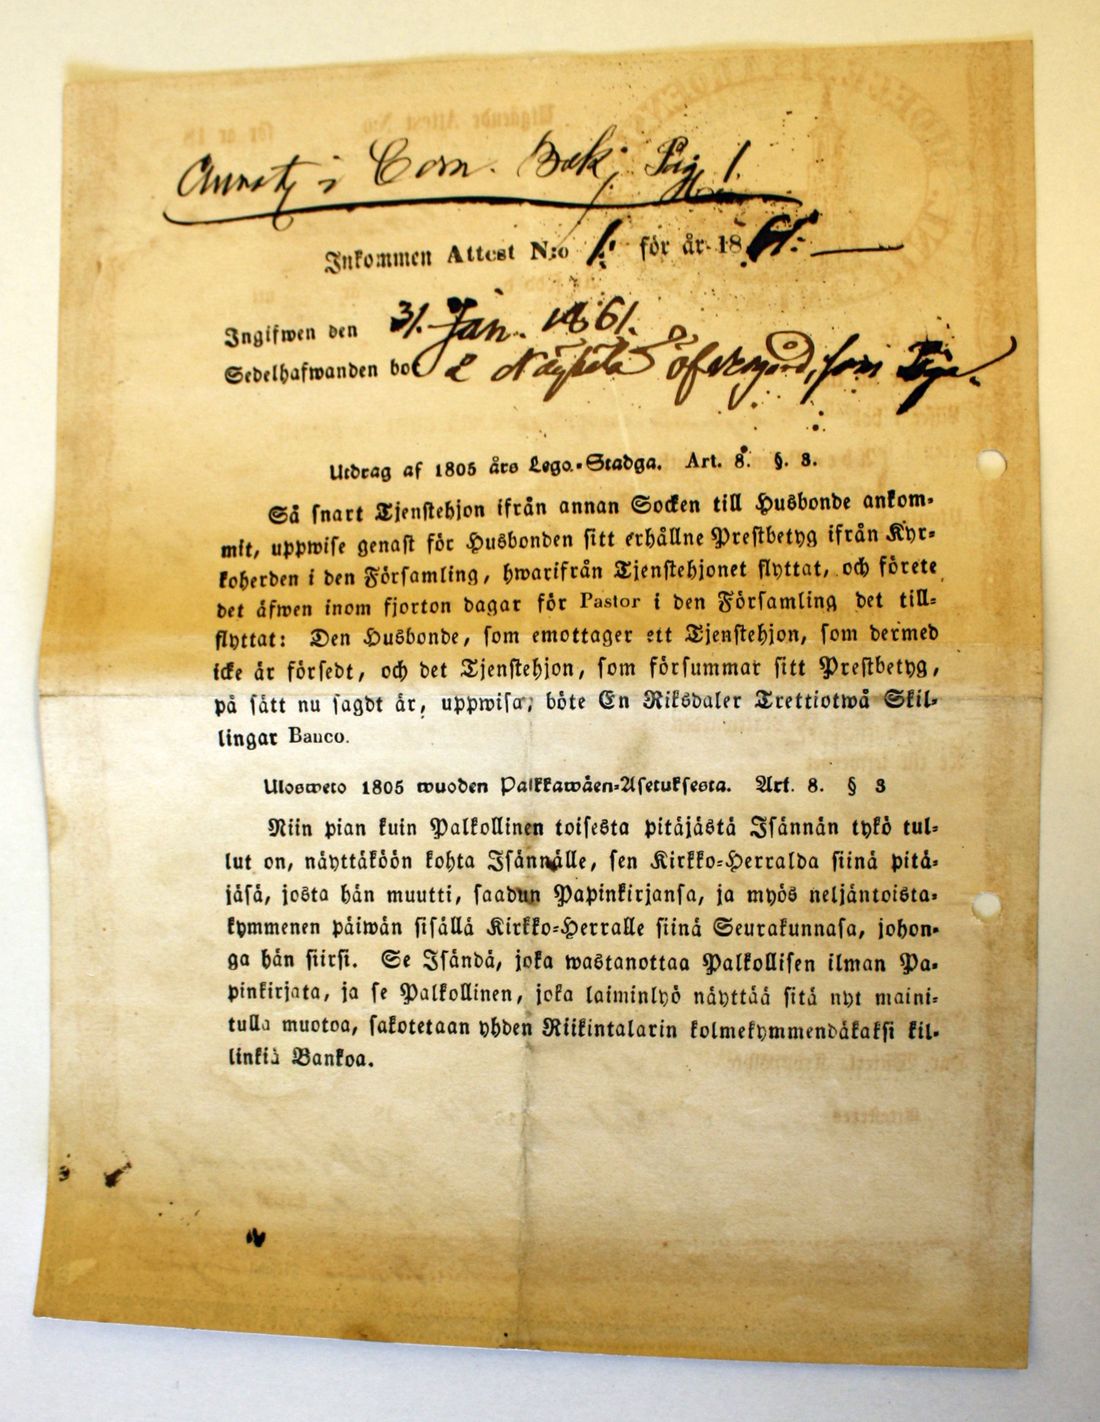 i Com. Bok, Pag. 1.
Inkommen Attest N:o 1. för år 1861.
Ingifwen den 31. Jan. 1861.
Sedelhafwanden bor
Utdrag af 1805 års Lego-Stadga. Art. 8. §. 3.
Så snart Tjenstehjon ifrån annan Socken till Husbonde ankom-
mit, uppwise genast för Husbonden sitt erhållne Prestbetyg ifrån Kyr-
koherden i den Församling, hwarifrån Tjenstehjonet flyttat, och förete
det äfwen inom fjorton dagar för Pastor i den Församling det till-
flyttat: Den Husbonde, som emottager ett Tjenstehjon, som dermed
icke är försedt, och det Tjenstehjon, som försummar sitt Prestbetyg,
på sätt nu sagdt är, uppwisa, böte En Riksdaler Trettiotwå Skil-
lingar Banco.
Ulosweto 1805 wuoden Palkkawäen-Asetuksesta. Art. 8. § 3
Niin pian kuin Palkollinen toisesta pitäjästä Isännän tykö tul-
lut on, näyttäköön kohta Isännälle, sen Kirkko-Herralda siinä pitä-
jäsä, josta hän muutti, saadun Papinkirjansa, ja myös neljäntoista-
kymmenen päiwän sisällä Kirkko-Herralle siinä Seurakunnasa, johon-
ga hän siirsi. Se Isändä, joka wastanottaa Palkollisen ilman Pa-
pinkirjata, ja se Palkollinen, joka laiminlyö näyttää sitä nyt maini-
tulla muotoa, sakotetaan yhden Riikintalarin kolmekymmendäkaksi kil-
linkiä Bankoa.